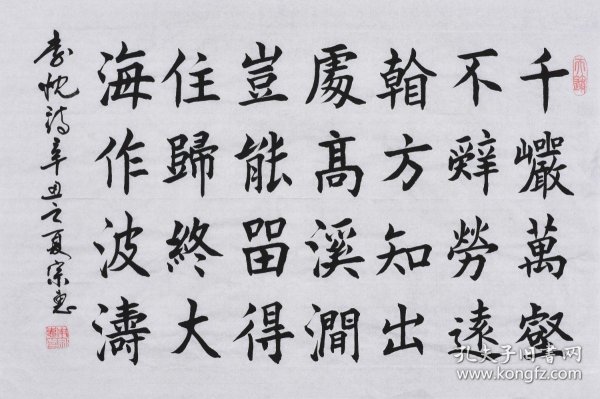 千巖萬壑
不辭勞遠
看方知出
處高溪澗
豈能留得
住歸終大
海作波濤
李忱詩辛丑之夏宗
孔夫子旧书网
www.kongfz.com